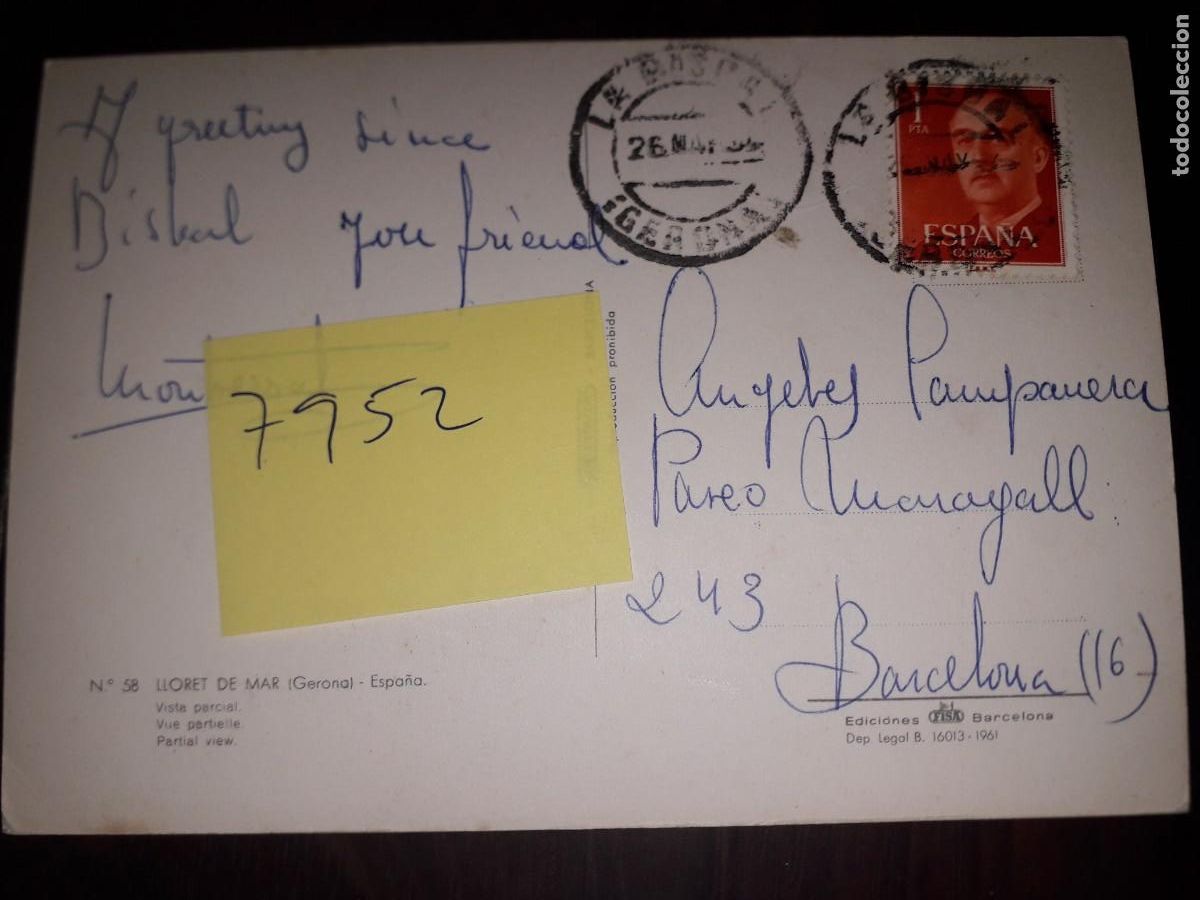 A greeting since
Bisbal your friend
7952
LA BISBAL
26
(GERONA)
1
PTA
ESPAÑA
CORREOS
Angeles Pampanera
Paseo Maragall
243
Barcelona (16)
prohibida
N.º 58 LLORET DE MAR (Gerona) - España.
Vista parcial.
Vue partielle.
Partial view.
Ediciones FISA Barcelona
Dep. Legal B. 16013 - 1961
todocoleccion